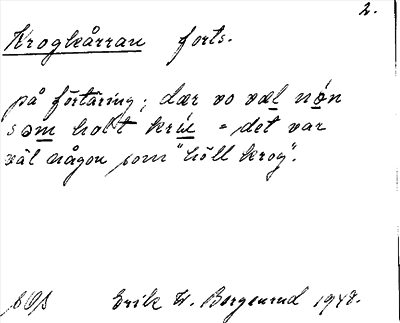 2.
Krogkårran forts.
på förtäring; dær vo væl nøn
søm holt krú = det var
väl någon som "höll krog".
Erik W. Borgenrud 1948.